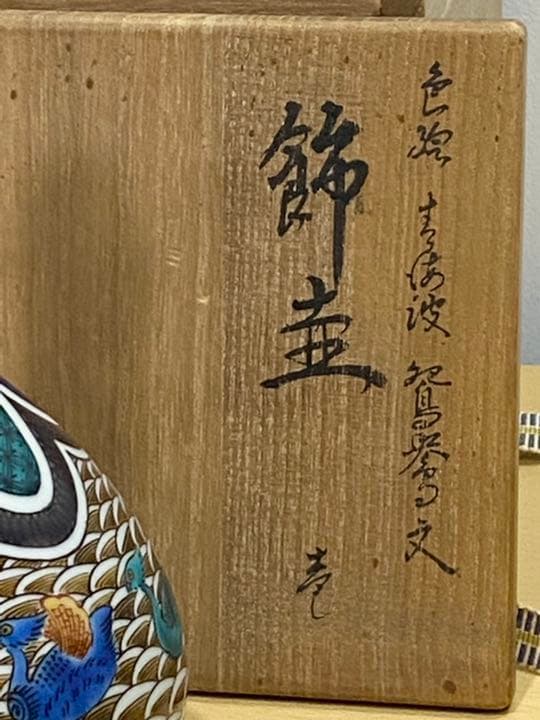 色絵 青海波 鴛鴦文
飾壺
壱